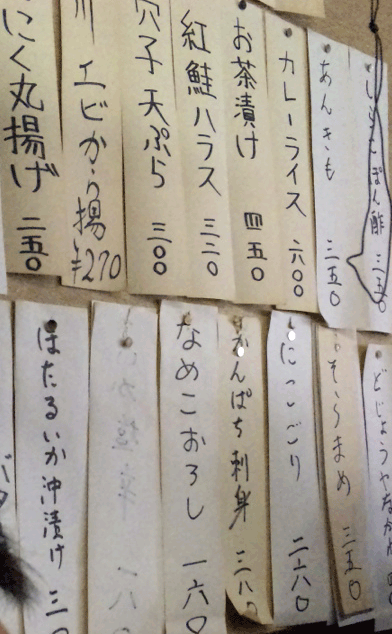 しらこぽん酢 三五〇
あんきも 三五〇
カレーライス 六〇〇
お茶漬け 四五〇
紅鮭ハラス 三三〇
穴子天ぷら 三〇〇
エビから揚 ¥270
にく丸揚げ 二五〇
どじょうやながわ
そらまめ 三五〇
にこごり 二八〇
かんぱち刺身 三八〇
なめこおろし 一六〇
ほたるいか沖漬け 三